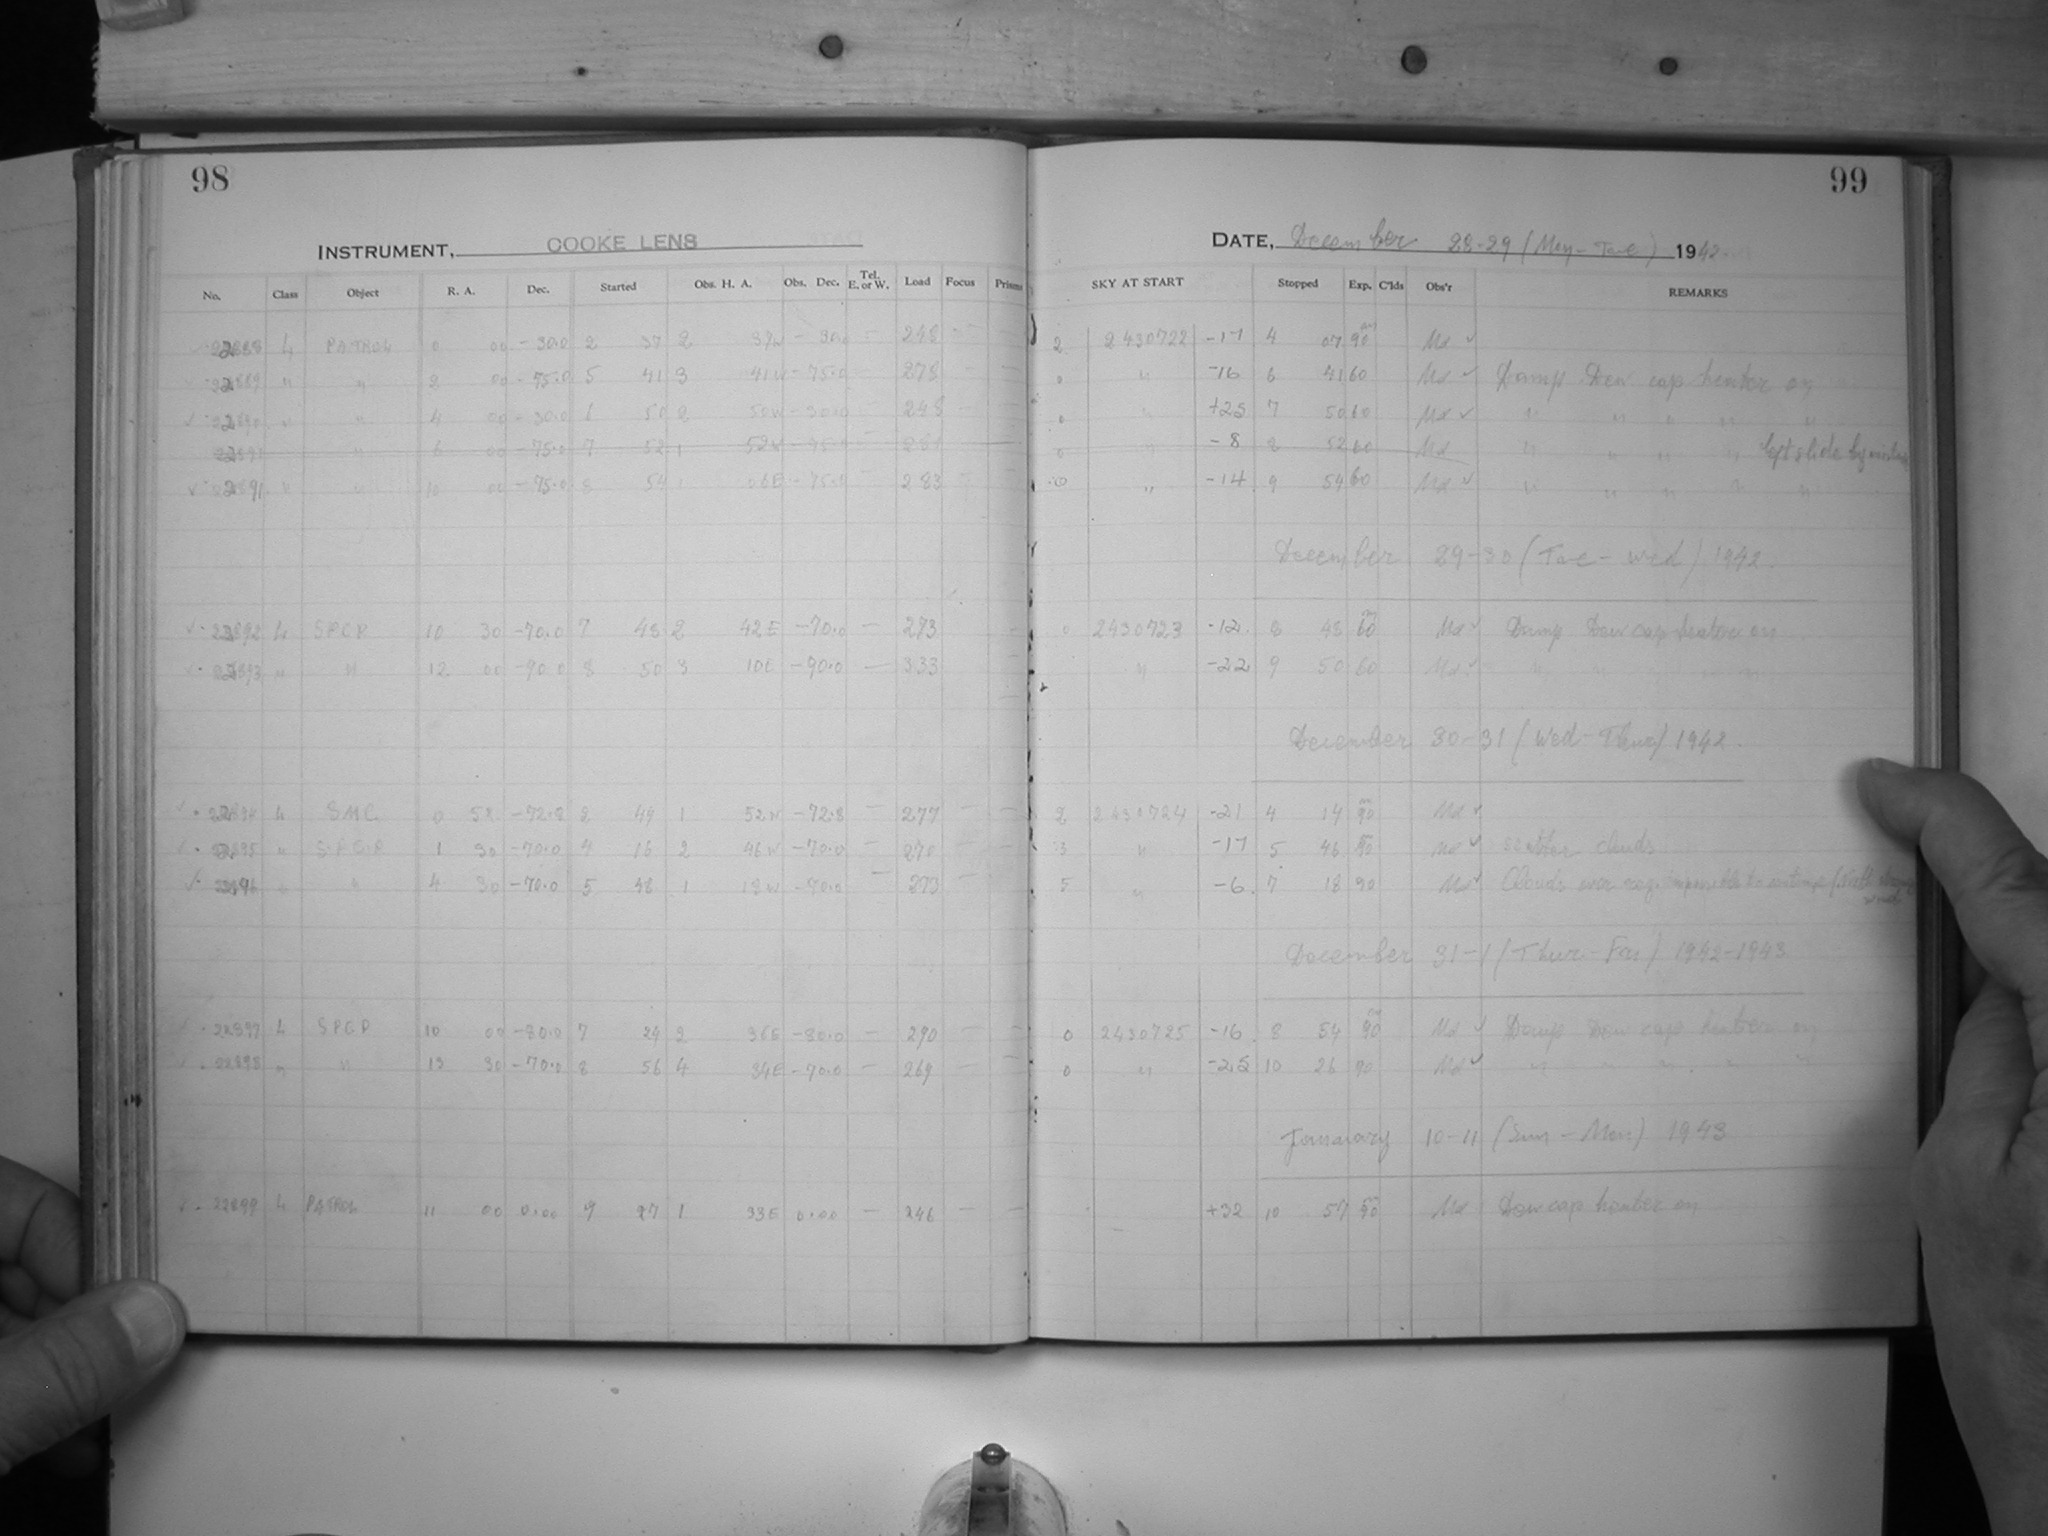 98
INSTRUMENT, COOKE LENS
No. Class Object R. A. Dec. Started Obs. H. A. Obs. Dec. Tel. E. or W. Load Focus Prisms
22888 L PATROL 0 00 -30.0 2 37 2 39W -30.0 — 248 — —
22889 " " 2 00 -75.0 5 41 3 41W -75.0 — 278 — —
22890 " " 4 00 -30.0 6 50 2 50W -30.0 — 248 — —
" 6 00 -75.0 7 52 1 52W -75.0 —
22891 " " 10 00 -75.0 8 54 1 06E -75.0 — 283 — —
22892 L SPCP 10 30 -70.0 7 48 2 42E -70.0 — 273 —
22893 " " 12 00 -90.0 8 50 3 10E -90.0 — 333 —
22894 L SMC 0 52 -72.8 2 44 1 52W -72.8 — 277 — —
22895 " SPCP 1 30 -70.0 4 16 2 46W -70.0 — 270 — —
22896 " " 4 30 -70.0 5 48 1 18W -70.0 — 273 — —
22897 L SPCP 10 00 -80.0 7 24 2 36E -80.0 — 290 — —
22898 " " 13 30 -70.0 8 56 4 34E -70.0 — 269 — —
22899 L PATROL 11 00 0.00 9 27 1 33E 0.00 — 246 — —
99
DATE, December 28-29 (Moy-Tue) 1942.
SKY AT START Stopped Exp. C'lds Obs'r REMARKS
2 2430722 -17 4 07 90 Md ✓
0 " -16 6 41 60 Md ✓ Damp Dew cap heater on
0 " +25 7 50 60 Md ✓ " " " " "
0 " -8 8 52 60 Md " " " " left slide by
0 " -14 9 54 60 Md ✓ " " " " "
December 29-30 (Tue-Wed) 1942.
0 2430723 -12 8 48 60 Md ✓ Damp Dew cap heater on
" -22 9 50 60 Md ✓ " " " " "
December 30-31 (Wed-Thur) 1942.
2 2430724 -21 4 14 90 Md ✓
3 " -17 5 46 90 Md ✓ scatter clouds
5 " -6 7 18 90 Md ✓ Clouds over reg. impossible to
December 31-1 (Thur-Fri) 1942-1943
0 2430725 -16 8 54 90 Md ✓ Damp Dew cap heater on
0 " -25 10 26 90 Md ✓ " " " " "
January 10-11 (Sun-Mon) 1943
+32 10 57 90 Md Dew cap heater on